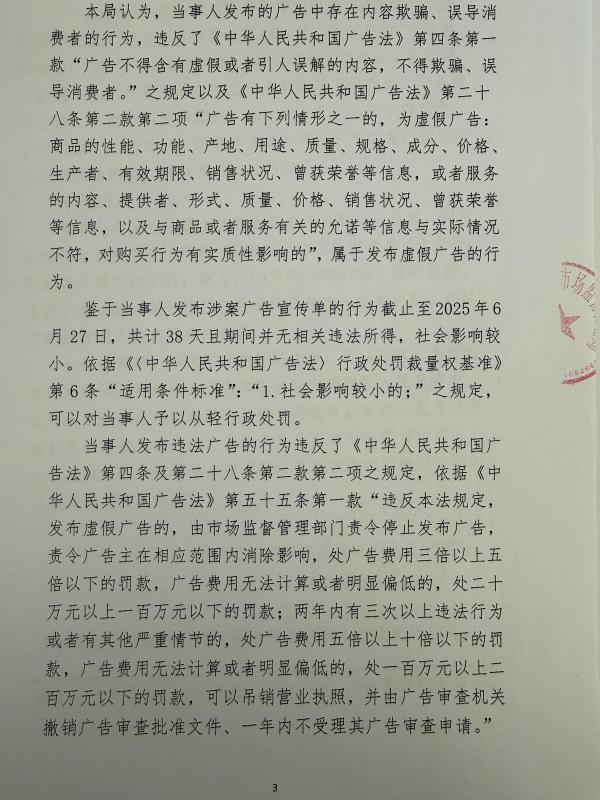 本局认为，当事人发布的广告中存在内容欺骗、误导消
费者的行为，违反了《中华人民共和国广告法》第四条第一
款“广告不得含有虚假或者引人误解的内容，不得欺骗、误
导消费者。”之规定以及《中华人民共和国广告法》第二十
八条第二款第二项“广告有下列情形之一的，为虚假广告：
商品的性能、功能、产地、用途、质量、规格、成分、价格、
生产者、有效期限、销售状况、曾获荣誉等信息，或者服务
的内容、提供者、形式、质量、价格、销售状况、曾获荣誉
等信息，以及与商品或者服务有关的允诺等信息与实际情况
不符，对购买行为有实质性影响的”，属于发布虚假广告的行
为。
鉴于当事人发布涉案广告宣传单的行为截止至2025年6
月27日，共计38天且期间并无相关违法所得，社会影响较
小。依据《〈中华人民共和国广告法〉行政处罚裁量权基准》
第6条“适用条件标准”：“1.社会影响较小的；”之规定，
可以对当事人予以从轻行政处罚。
当事人发布违法广告的行为违反了《中华人民共和国广
告法》第四条及第二十八条第二款第二项之规定，依据《中
华人民共和国广告法》第五十五条第一款“违反本法规定，
发布虚假广告的，由市场监督管理部门责令停止发布广告，
责令广告主在相应范围内消除影响，处广告费用三倍以上五
倍以下的罚款，广告费用无法计算或者明显偏低的，处二十
万元以上一百万元以下的罚款；两年内有三次以上违法行为
或者有其他严重情节的，处广告费用五倍以上十倍以下的罚
款，广告费用无法计算或者明显偏低的，处一百万元以上二
百万元以下的罚款，可以吊销营业执照，并由广告审查机关
撤销广告审查批准文件、一年内不受理其广告审查申请。”
市场监
3